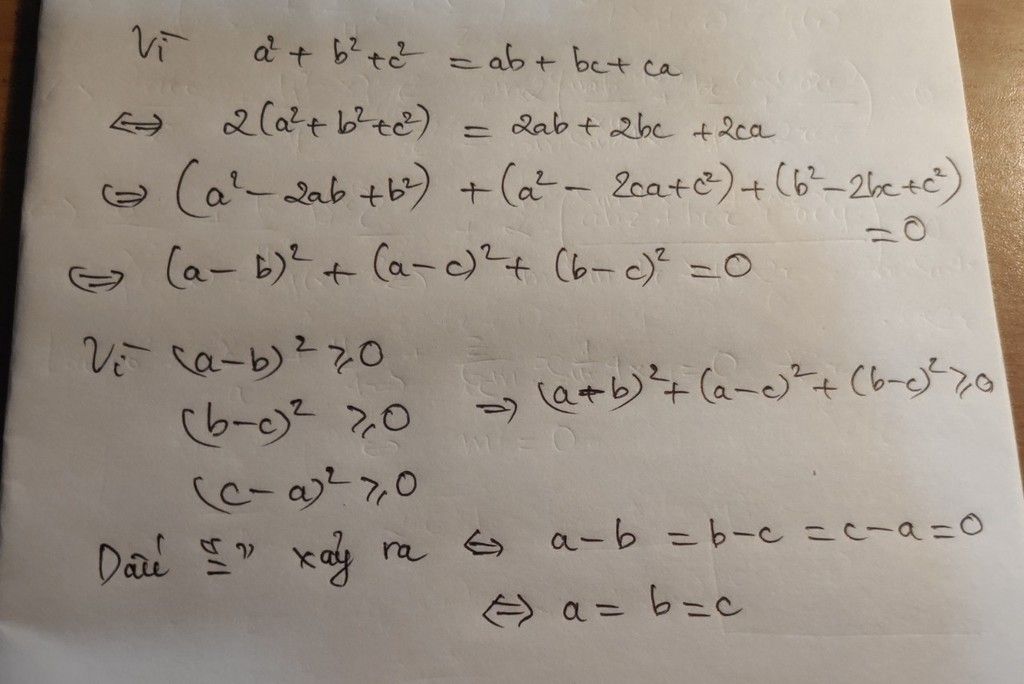 Vì a² + b² + c² = ab + bc + ca
⇔ 2(a² + b² + c²) = 2ab + 2bc + 2ca
⇔ (a² - 2ab + b²) + (a² - 2ca + c²) + (b² - 2bc + c²)
= 0
⇔ (a - b)² + (a - c)² + (b - c)² = 0
Vì (a - b)² ≥ 0
(b - c)² ≥ 0 ⇒ (a - b)² + (a - c)² + (b - c)² ≥ 0
(c - a)² ≥ 0
Dấu "=" xảy ra ⇔ a - b = b - c = c - a = 0
⇔ a = b = c